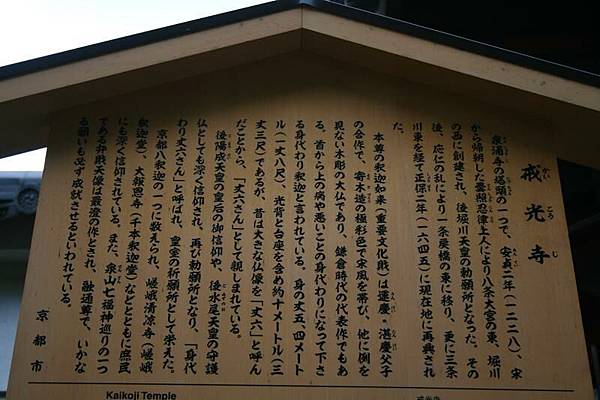 戒光寺
かいこうじ
泉涌寺の塔頭の一つで、安貞二年(一二二八)、宋
から帰朝した曇照忍律上人により八条大宮の東、堀川
の西に創建され、後堀川天皇の勅願所となった。その
後、応仁の乱により一条戻橋の東に移り、更に三条
川東を経て正保二年(一六四五)に現在地に再興され
た。
本尊の釈迦如来(重要文化財)は運慶、湛慶父子
の合作で、寄木造の極彩色で宋風を帯び、他に例を
見ない木彫の大仏であり、鎌倉時代の代表作でもあ
る。首から上の病や悪いことの身代わりになって下さ
る身代わり釈迦と言われている。身の丈五、四メート
ル(一丈八尺)、光背と台座を含め約十メートル(三
丈三尺)であるが、昔は大きな仏像を「丈六」と呼ん
だことから、「丈六さん」として親しまれている。
後陽成天皇の皇后の御信仰や、後水尾天皇の守護
仏としても深く信仰され、再び勅願所となり、「身代
わり丈六さん」と呼ばれ、皇室の祈願所として栄えた。
京都八釈迦の一つに数えられ、嵯峨清凉寺(嵯峨
釈迦堂)、大報恩寺(千本釈迦堂)などとともに庶民
にも深く信仰されている。また、泉山七福神巡りの一つ
である弁財天像は最澄の作とされ、融通尊で、いかな
る願いも必ず成就させるといわれている。
京都市
Kaikoji Temple
戒光寺